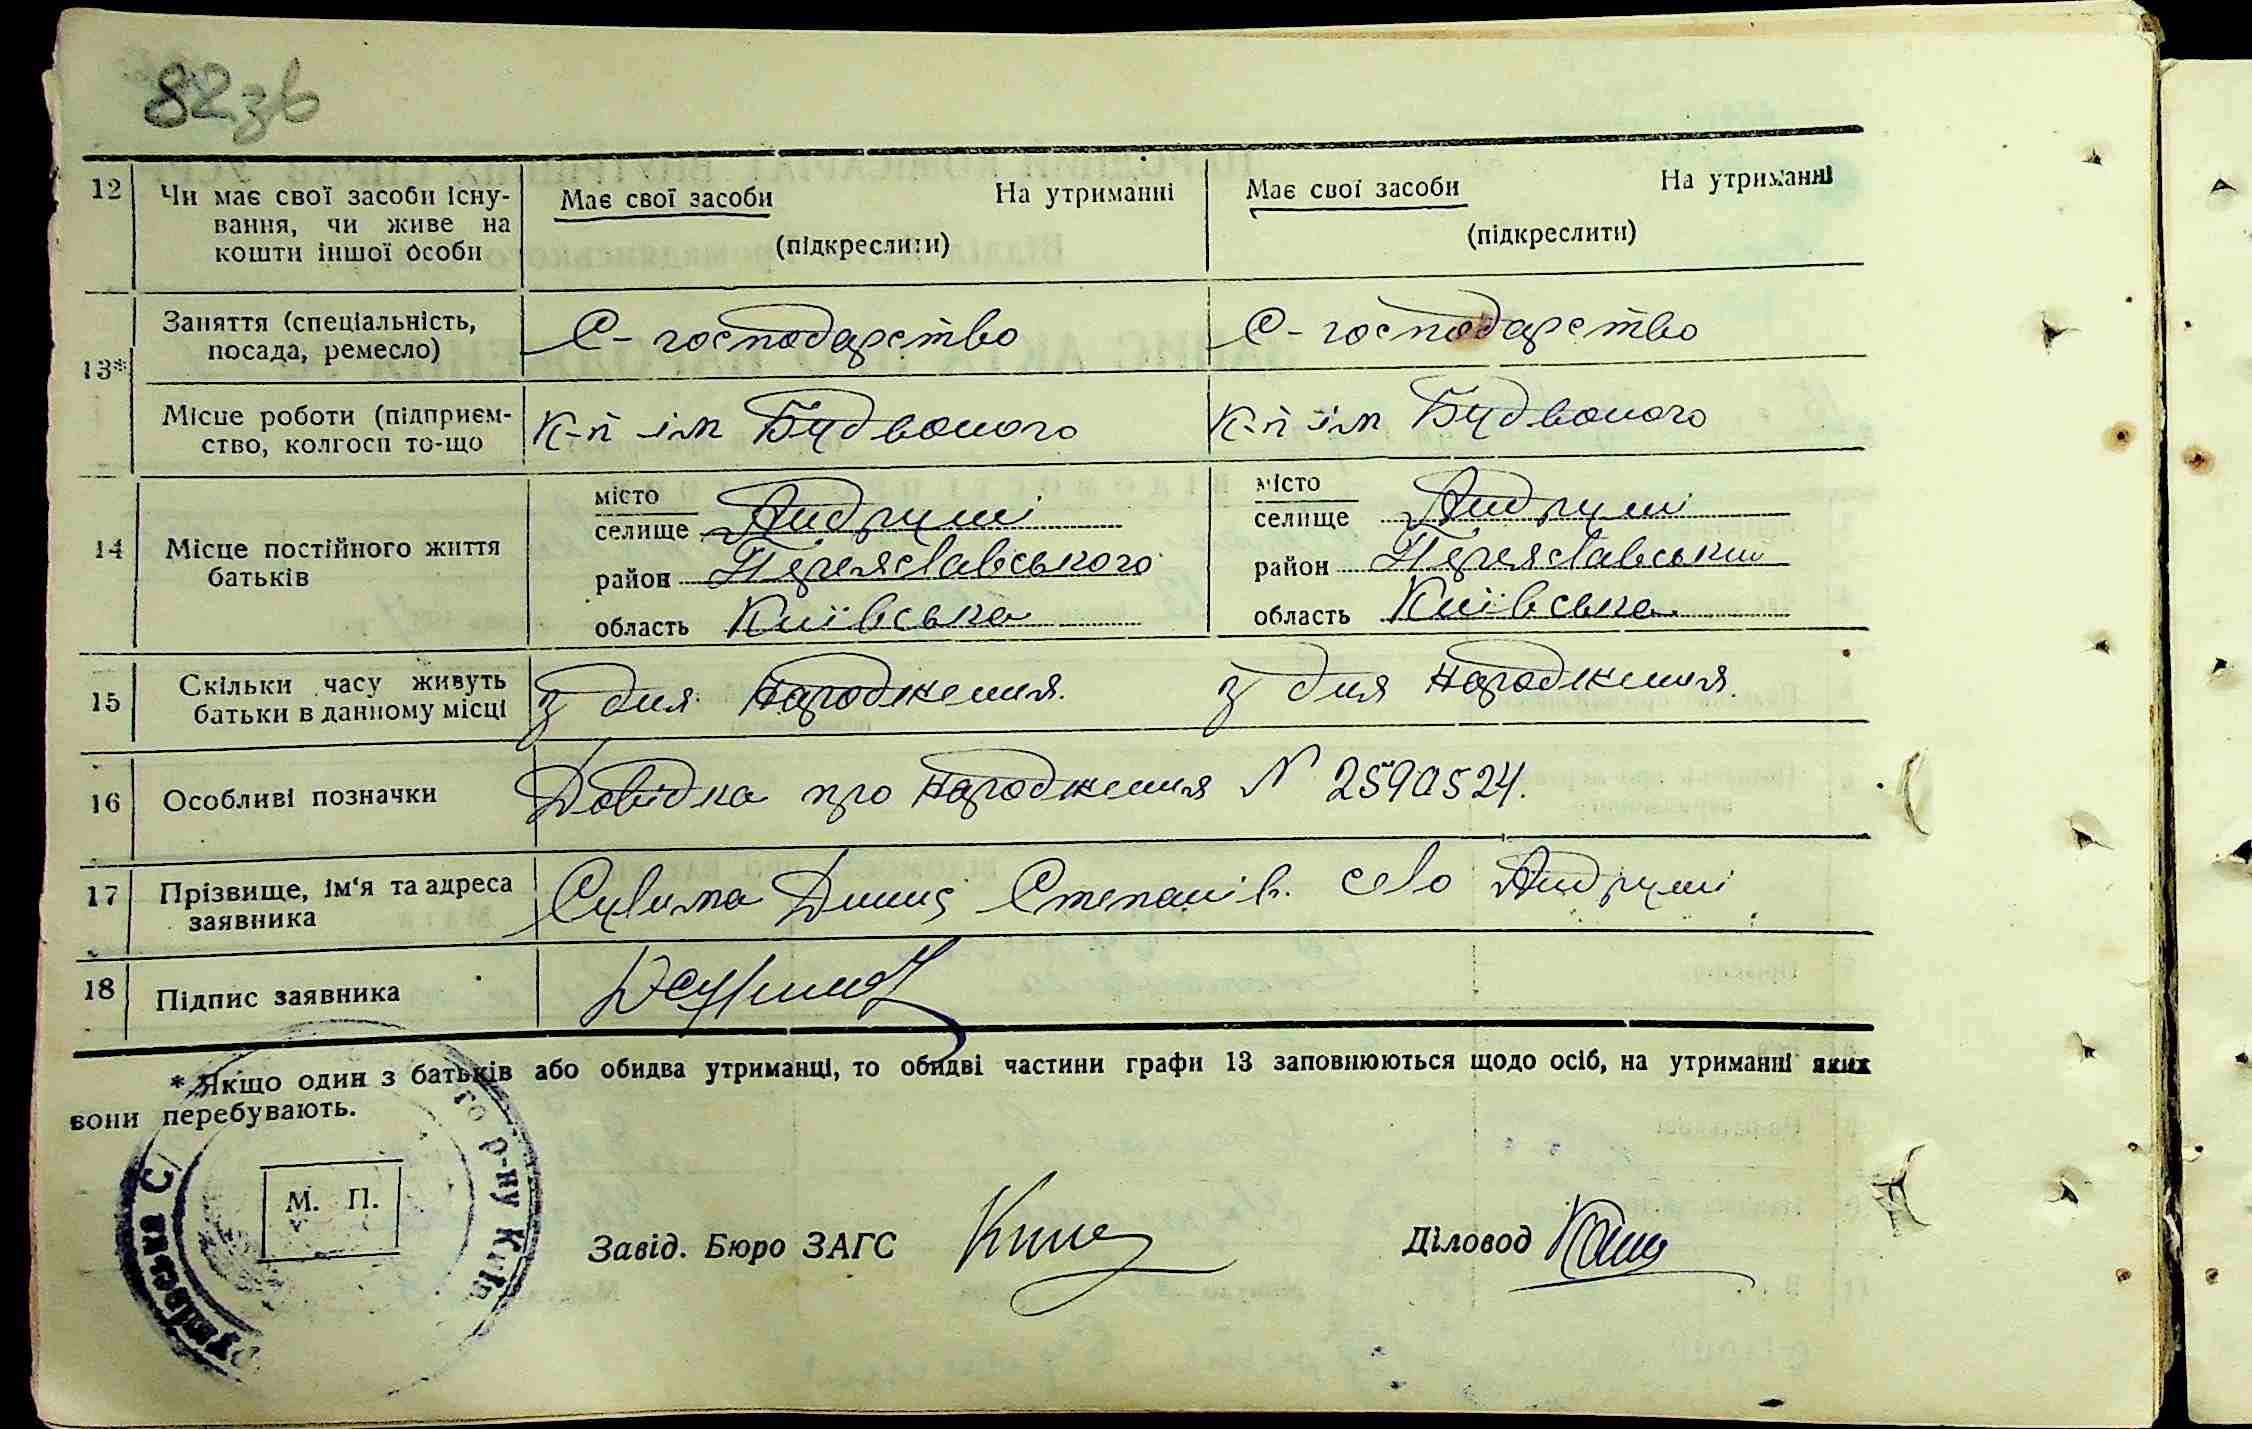 82зв
12 Чи має свої засоби існу- Має свої засоби На утриманні Має свої засоби На утриманні
вання, чи живе на (підкреслити) (підкреслити)
кошти іншої особи
13* Заняття (спеціальність, С-господарство С-господарство
посада, ремесло)
Місце роботи (підприєм- К-п ім Будьоного К-п ім Будьоного
ство, колгосп то-що
14 Місце постійного життя місто місто
батьків селище Андруші селище Андруші
район Переяславського район Переяславський
область Київська область Київська
15 Скільки часу живуть з дня народження. з дня народження.
батьки в данному місці
16 Особливі позначки Довідка про народження N 2590524.
17 Прізвище, ім'я та адреса Сулима Степанів. село Андруші
заявника
18 Підпис заявника
* Якщо один з батьків або обидва утриманці, то обидві частини графи 13 заповнюються щодо осіб, на утриманні яких
вони перебувають.
го р-ну Київ
М. П.
Завід. Бюро ЗАГС Діловод